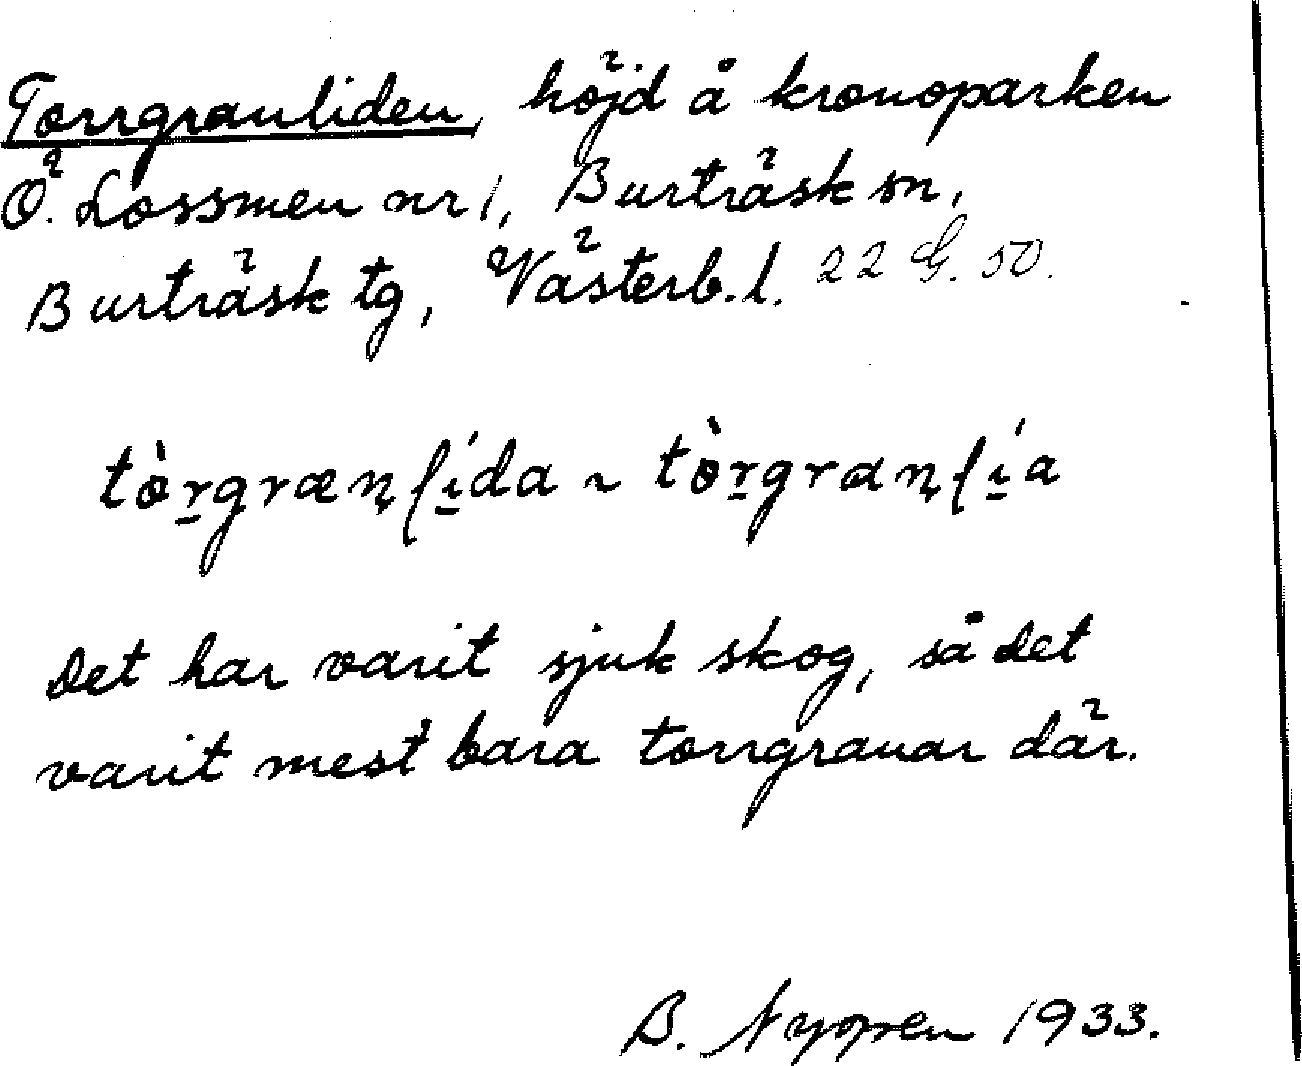 Torrgranliden, höjd å kronoparken
Ö. Lossmen nr 1, Burträsk sn,
Burträsk tg, Västerb. l. 22 G. 50.
tòr̠græn̨ſí̠da ~ tòr̠gran̨ſí̠a
Det har varit sjuk skog, så det
varit mest bara torrgranar där.
B. Nyppen 1933.